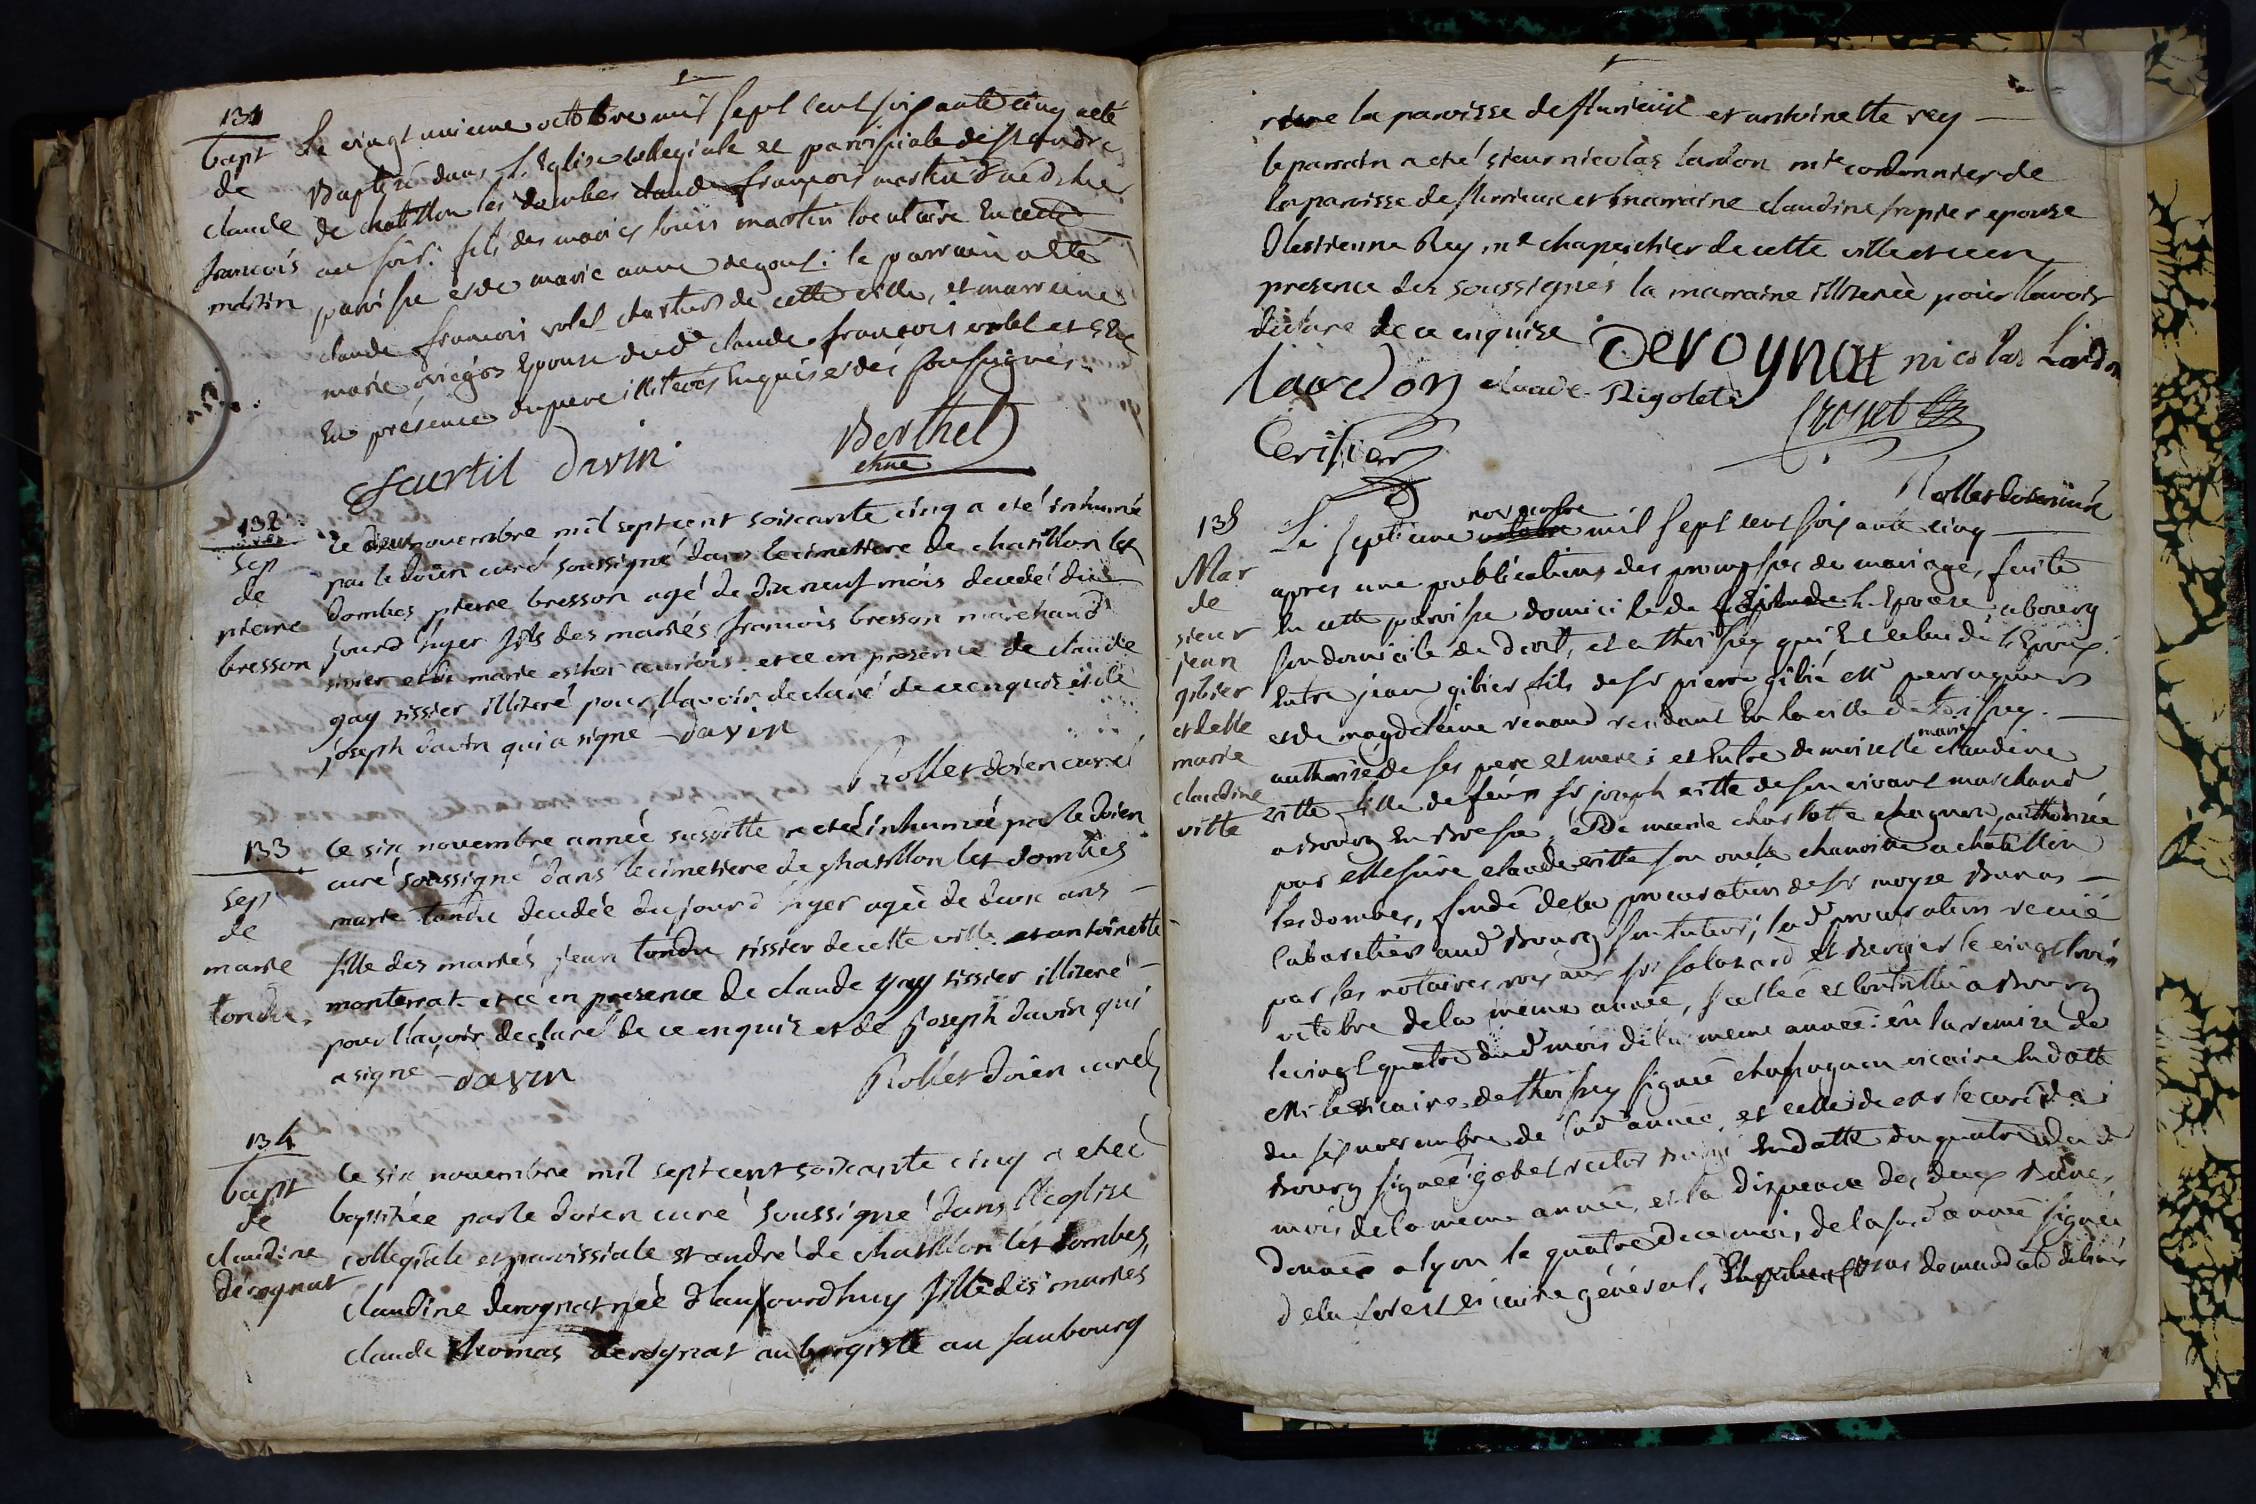 131
bapt
de
claude
francois
martin
Le vingt unieme octobre mil sept cent soixante cinq a eté
Baptisé dans L'Eglise collegiale et paroissiale de st andré
de chatillon les dombes claude françois martin né d'hier
au soir. fils des mariés louis martin locataire En cette
paroisse et de marie anne degout: le parrain a été
claude françois volet chartier de cette ville, et marreine
marie Epouse dud. claude françois volet et
En présence du pere illiterés Enquis et des soussignés.
davin
Berthet
chne
132
sep
de
pierre
bresson
le deux novembre mil sept cent soixante cinq a eté inhumé
par le doien curé soussigné dans le cimetiere de chatillon les
dombes pierre bresson agé de dix neuf mois decedé du
jourd'hyer fils des mariés francois bresson marchand
tissier et de marie esther et ce en presence de claude
gay tissier illiteré pour l'avoir declaré de ce enquis et de
joseph davin qui a signé davin
Rollet doien curé
133
sep
de
marie
tondu
le six novembre année susditte a eté inhumée par le doien
curé soussigné dans le cimetiere de chatillon les dombes
marie tondu decedée du jourd'hyer agée de deux ans
fille des mariés jean tondu tissier de cette ville et antoinette
monterrat et ce en presence de claude gay tissier illiteré
pour l'avoir declaré de ce enquis et de joseph davin qui
a signé davin
Rollet doien curé
134
bapt
de
claudine
derognat
le six novembre mil sept cent soixante cinq a eteé
baptisée par le doien curé soussigné dans l'eglise
collegiale et paroissiale st andré de chatillon les dombes,
claudine derognat née d'aujourdhuy fille des mariés
claude thomas derognat aubergiste au faubourg
la paroisse de flurieux et antoinette rey
le parrain a eté sieur nicolas lardon mtre cordonnier de
la paroisse de flurieux et marraine claudine frapier epouze
d'estienne Rey, me chapeichier de cette ville et ce en
presence des soussignés la marraine illiterée pour l'avoir
declare de ce enquise
Derognat nicolas Lardon
lardon claude Rigolet
Crozet
Cerisier
Rollet doien curé
135
Mar
de
sieur
jean
gibier
et delle
marie
claudine
vitte
Le septieme novembre mil sept cent soixante cinq
apres une publication des promesses de mariage, faite
En cette paroisse domicile de L'Epouse, a bourg
son domicile de droit, et a thoissey qui Est celui de L'Epoux:
Entre jean gibier fils de sr pierre gibié mre perruquier
et de magdeleine renaud residant En la ville de thoissey
authorisé de ses pere et mere: et Entre demoiselle marie claudine
vitte fille de feu sr joseph vitte de son vivant marchand
a Bourg En Bresse, et de marie charlotte chagnon, authorisée
par Messire claude vitte son oncle chanoine a chatillon
les dombes, fondé de la procuration de sr moyse Buras
Cabaretier aud Bourg son tuteur; lad procuration recuë
par les notaires royaux srs et Bergier le vingt trois
octobre de la même année, scellée et controllée a Bourg
le vingt quatre dud mois de la meme année: vû la remise de
Mr le vicaire de thoissey signée vicaire En datte
du six novembre de lad année, et celle de Mr le curé de
Bourg signée gobet En datte du quatre du d
mois de la meme année, et la dispence des deux Bans,
donnée a lyon le quatre de ce mois, de la susd année signée
de la forest vicaire général, demandato